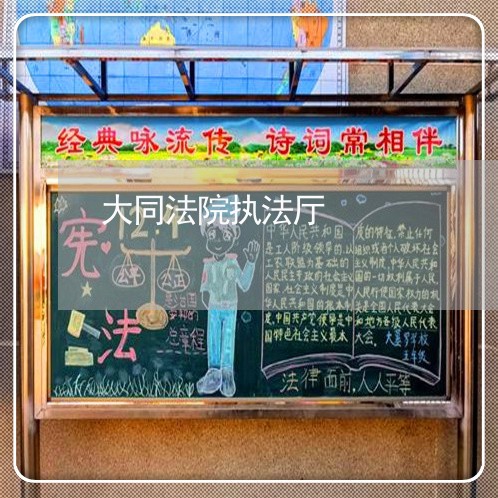 经典咏流传 诗词常相伴
大同法院执法厅
12.4
宪
法
公平
公正
总章程
中华人民共和国
是工人阶级领导的,以
工农联盟为基础的
人民民主专政的社会主义
国家,社会主义制度是中
华人民共和国的根本制
度,中国共产党领导是中
国特色社会主义最本
质的特征,禁止任何
组织或者个人破坏社会
主义制度,中华人民共和
国的一切权利属于人民,
人民行使国家权力的机
关是全国人民代表大会
和地方各级人民代表
大会。
五年级
法律面前,人人平等